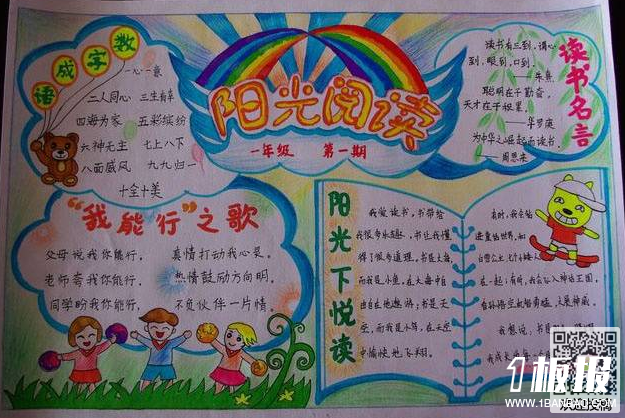 数字成语
一心一意
二人同心 三生有幸
四海为家 五彩缤纷
六神无主 七上八下
八面威风 九九归一
十全十美
阳光阅读
一年级 第一期
读书名言
读书有三到,谓心
到,眼到,口到。
——朱熹
聪明在于勤奋,
天才在于积累。
——华罗庚
为中华之崛起而读书。
——周恩来
“我能行”之歌
父母说我你能行, 真情打动我心灵。
老师夸我你能行, 热情鼓励方向明。
同学盼我你能行, 不负伙伴一片情。
阳光下悦读
我爱读书,书带给
我很多乐趣,书让我懂
得了很多道理。书是大海,
而我是小鱼,在大海中自
由自在地遨游;书是天
空,而我是小鸟,在天空
中愉快地飞翔。
有时,我会钻
进童话世界,和
在一起;有时,我会进入神话王国,
我想说,书
1板报
WWW.1BANBAO.COM